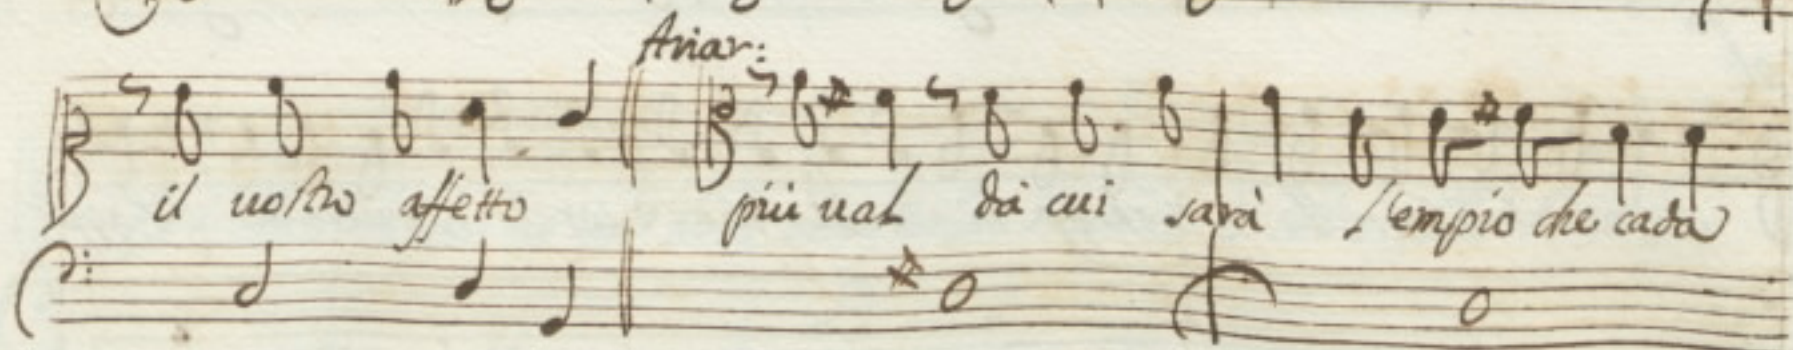 Ariar:
il vostro affetto più val dà cui sarà l'empio che cada